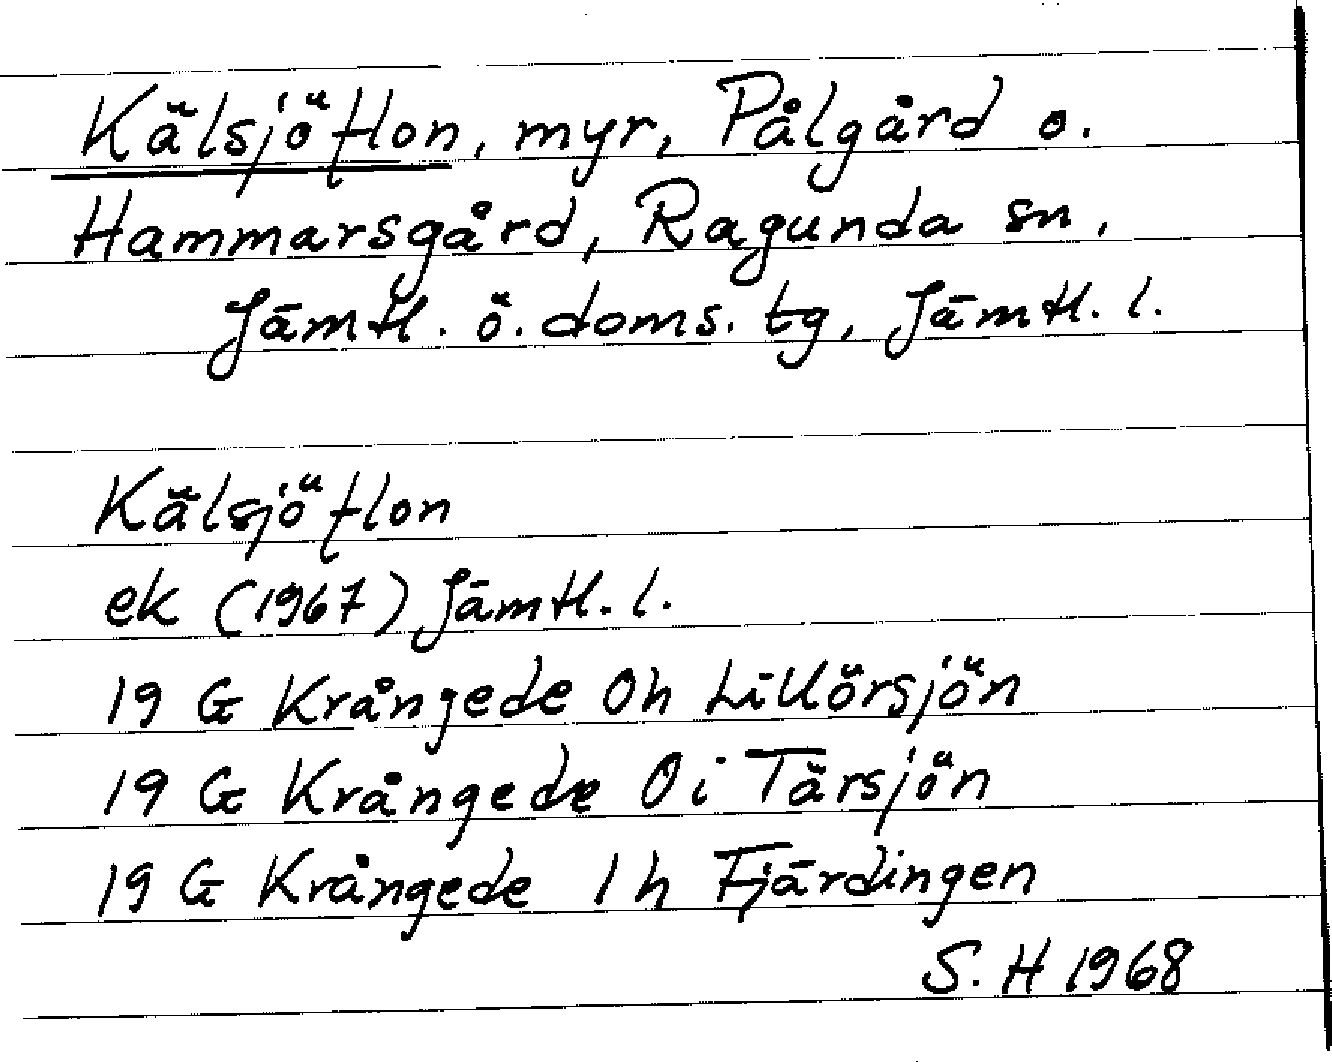 Kälsjöflon, myr, Pålgård o.
Hammarsgård, Ragunda sn,
Jämtl. ö. doms. tg, Jämtl. l.
Kälsjöflon
ek (1967) Jämtl. l.
19 G Krångede 0h Lillörsjön
19 G Krångede 0i Tärsjön
19 G Krångede 1h Fjärdingen
S. H 1968